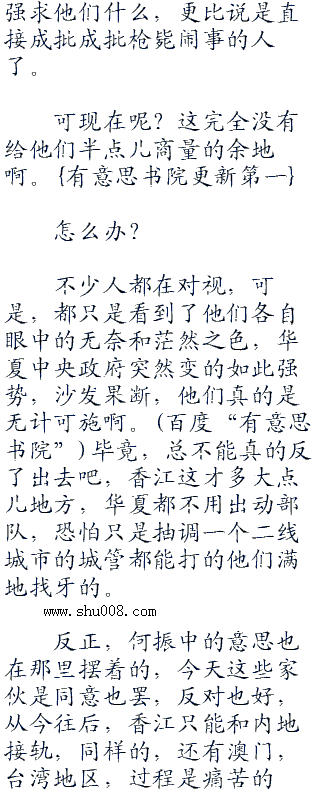 强求他们什么，更比说是直
接成批成批枪毙闹事的人
了。
可现在呢？这完全没有
给他们半点儿商量的余地
啊。{有意思书院更新第一}
怎么办？
不少人都在对视，可
是，都只是看到了他们各自
眼中的无奈和茫然之色，华
夏中央政府突然变的如此强
势，沙发果断，他们真的是
无计可施啊。(百度“有意思
书院”)毕竟，总不能真的反
了出去吧，香江这才多大点
儿地方，华夏都不用出动部
队，恐怕只是抽调一个二线
城市的城管都能打的他们满
地找牙的。
www.shu008.com
反正，何振中的意思也
在那里摆着的，今天这些家
伙是同意也罢，反对也好，
从今往后，香江只能和内地
接轨，同样的，还有澳门，
台湾地区，过程是痛苦的